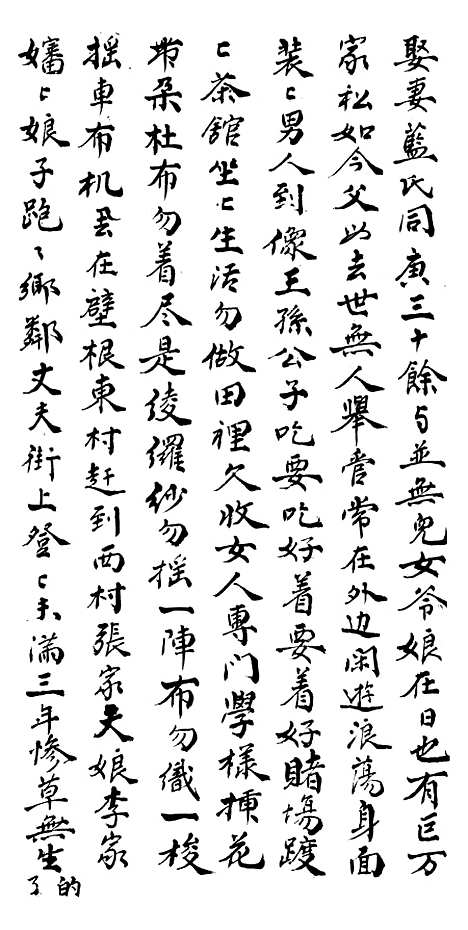 娶妻藍氏同庚三十餘与並無兒女爷娘在日也有巨万
家私如今父以去世無人舉管常在外边閑遊浪蕩身面
装〻男人到像王孫公子吃要吃好着要着好賭塲踱
〻茶館坐〻生活勿做田裡欠收女人專門學樣揷花
带朶杜布勿着尽是綾羅紗勿摇一陣布勿織一梭
摇車布机丟在壁根東村赶到西村張家大娘李家
嬸〻娘子跑〻鄉鄰丈夫街上登〻未满三年惨草無生
的了